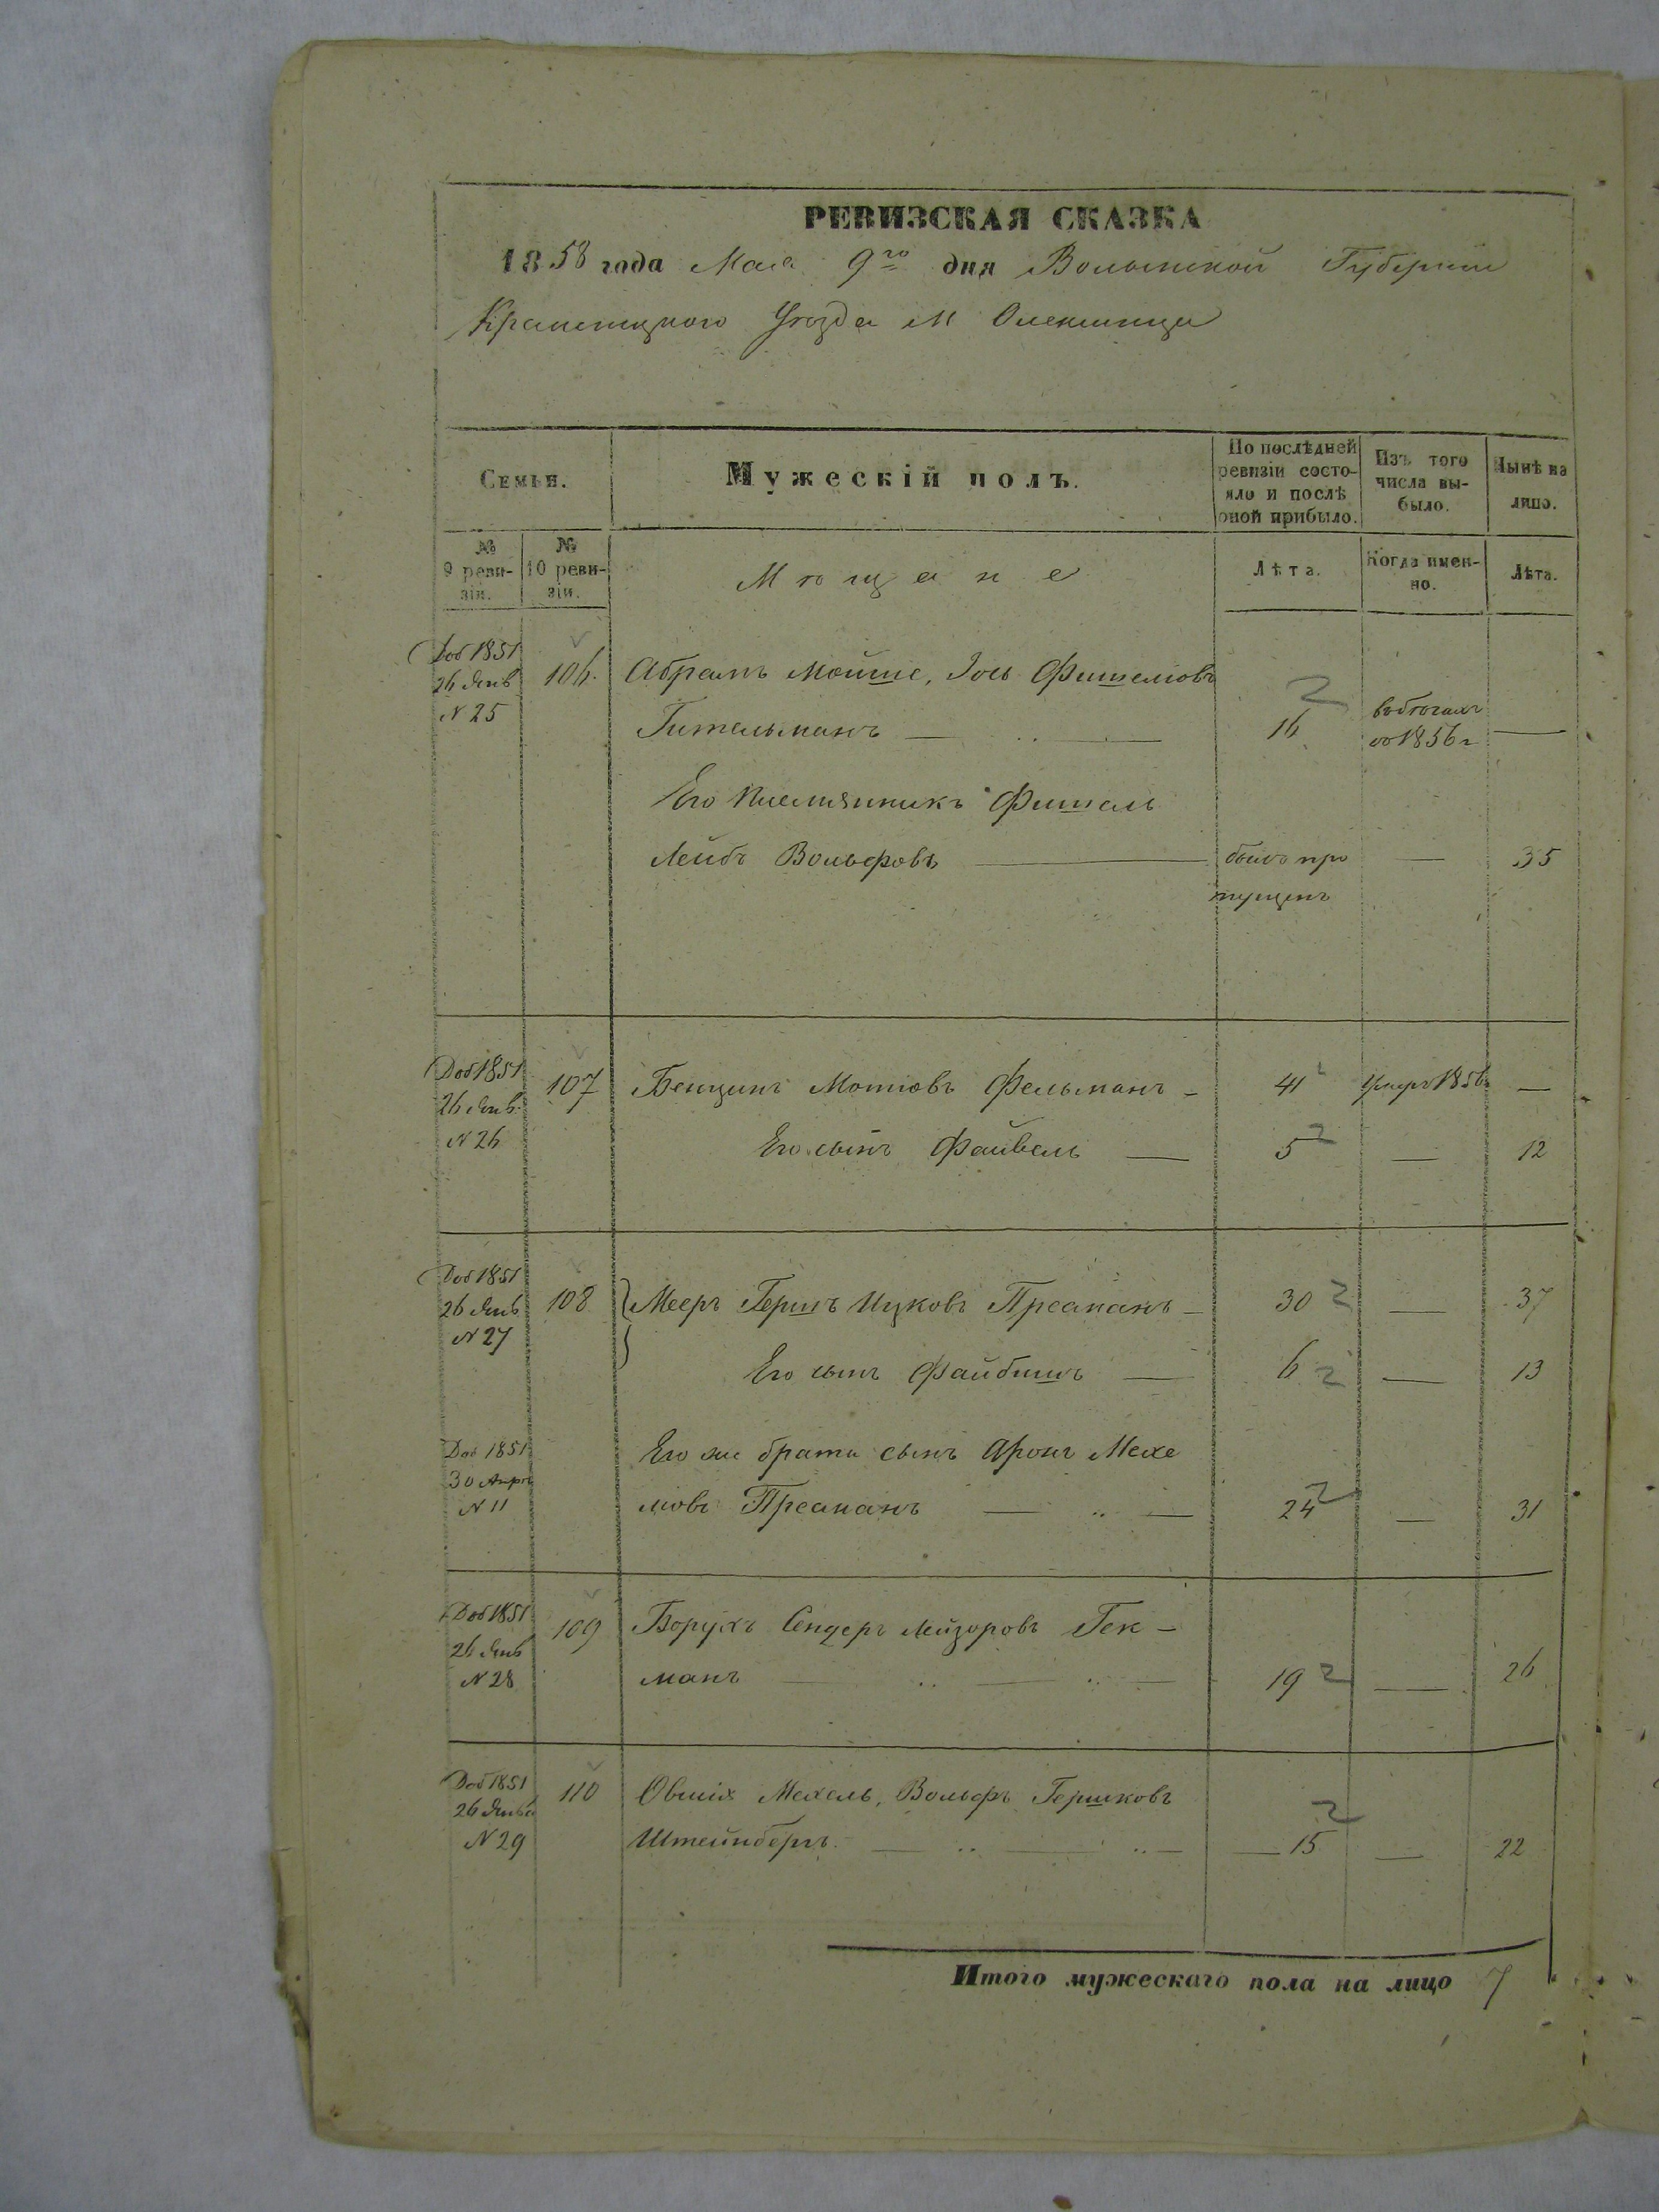 РЕВИЗСКАЯ СКАЗКА
1858 года Мая 9го дня Волынской Губерніи
Кременецкого Уѣзда М Олексинца
Семьи.
Мужескій полъ.
По послѣдней ревизіи состо-
яло и послѣ оной прибыло.
Изъ того числа вы-
было.
Нынѣ на лицо.
№ 9 реви-
зіи.
№ 10 реви-
зіи.
Мѣщане
Лѣта.
Когда имен-
но.
Лѣта.
Доб 1851 26 Янв N 25
106. Абрамъ Мойше, Іось Фишелювъ
Гительманъ — 16 2 въ бѣгахъ со 1856 г —
Его племянникъ Фишель
Лейбъ Вольфовъ — былъ про — 35
пущенъ
Доб 1851 26 Янв. N 26
107 Бенционъ Мотювъ Фельманъ - 41 2 Умеръ 1856 —
Его сынъ Файвель — 5 2 — 12
Доб 1851 26 Янв N 27
108 Мееръ Гершъ Ицковъ Пресманъ - 30 2 — 37
Его сынъ Файбишъ — 6 2 — 13
Доб 1851 30 Апрѣ N 11
Его же брата сынъ Аронъ Мехе
лювъ Пресманъ — 24 2 — 31
Доб 1851 26 Янв N 28
109 Борухъ Сендеръ Лейзоровъ Гек -
манъ — 19 2 — 26
Доб 1851 26 Янва N 29
110 Овшія Мехель, Вольфъ Гершковъ
Штейнбергъ. — 15 2 — 22
Итого мужескаго пола на лицо 7